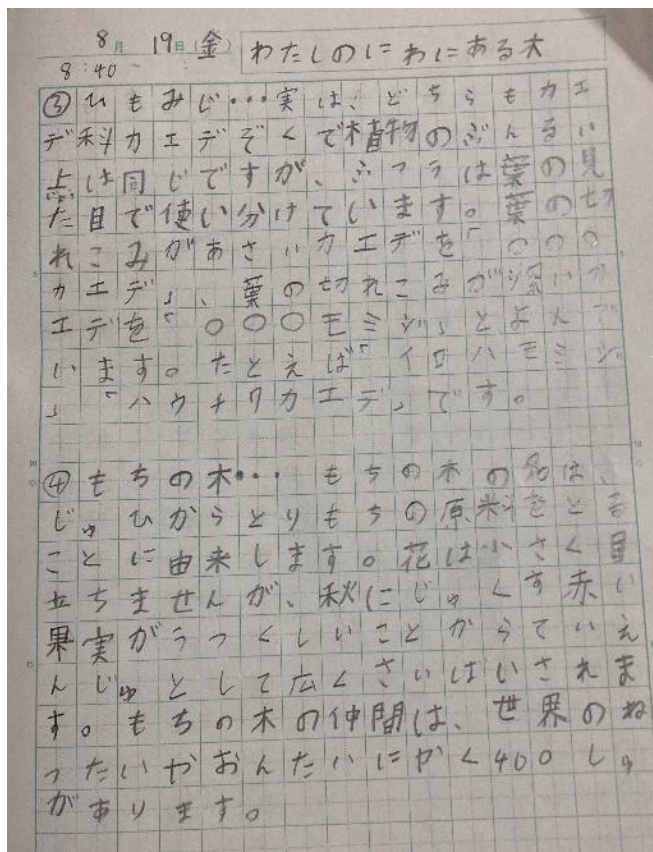 8月 19日(金) わたしのにわにある木
8:40
③ひもみじ・・・実は、どちらもカエ
デ科カエデぞくで植物のぶんるい
上は同じですが、ふつうは葉の見
た目で使い分けています。葉の切
れこみがあさいカエデを「○○○
カエデ」、葉の切れこみが深いカ
エデを「○○○モミジ」とよんで
います。たとえば「イロハモミジ
」「ハウチワカエデ」です。
④もちの木・・・もちの木の名は、
じゅひからとりもちの原料をとる
ことに由来します。花は小さく目
立ちませんが、秋にじゅくす赤い
果実がうつくしいことからていえ
んじゅとして広くさいばいされま
す。もちの木の仲間は、世界のね
ったいやおんたいにやく400しゅ
があります。